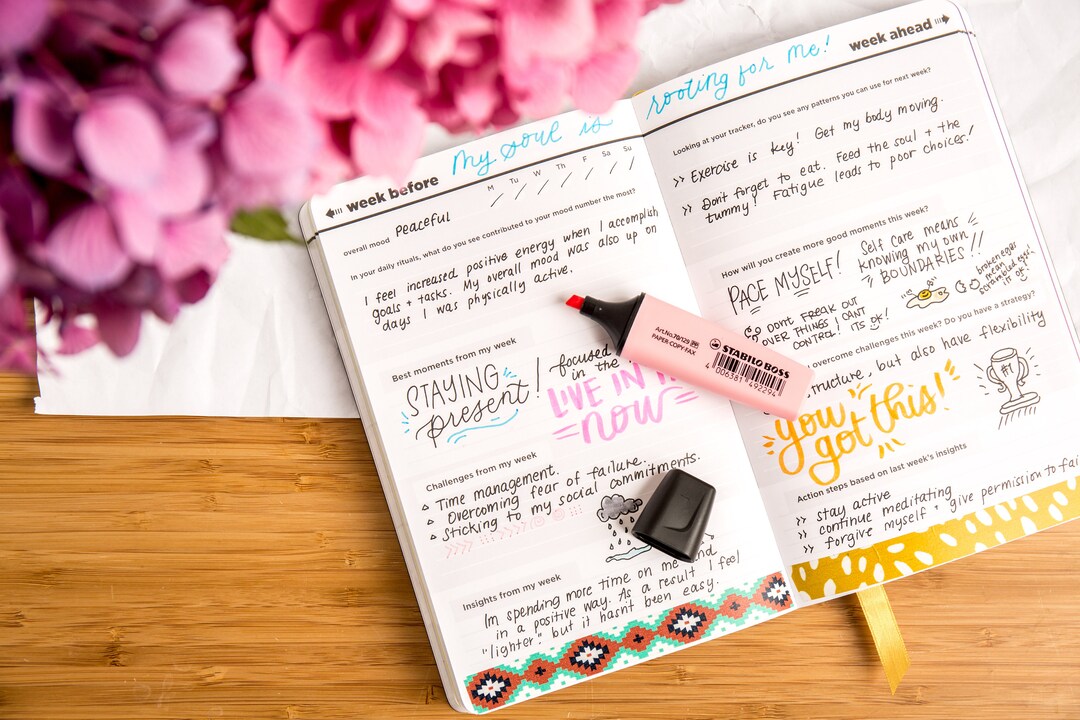 my soul is rooting for me!
week before
M Tu W Th F Sa Su
overall mood Peaceful
In your daily rituals, what do you see contributed to your mood number the most?
I feel increased positive energy when I accomplish
goals + tasks. My overall mood was also up on
days I was physically active.
Best moments from my week
STAYING present! focused
in the
LIVE IN
now
Challenges from my week
Time management.
Overcoming fear of failure.
Sticking to my social commitments.
Insights from my week
Im spending more time on me and
in a positive way. As a result I feel
"lighter." but it hasnt been easy.
week ahead
Looking at your tracker, do you see any patterns you can use for next week?
>> Exercise is key! Get my body moving.
>> Don't forget to eat. Feed the soul + the
tummy! Fatigue leads to poor choices!
How will you create more good moments this week?
PACE MYSELF!
Self care means
knowing my own
BOUNDARIES!!
DONT FREAK OUT
OVER THINGS I CANT
CONTROL! ITS OK!
broken egg
mean
scrambled eggs
overcome challenges this week? Do you have a strategy?
structure, but also have flexibility
you
got this!
#1
Action steps based on last week's insights
>> stay active
>> continue meditating
>> forgive myself + give permission to fail
Art.No.70/129
PAPER COPY FAX
STABILO BOSS
4 006381 492294